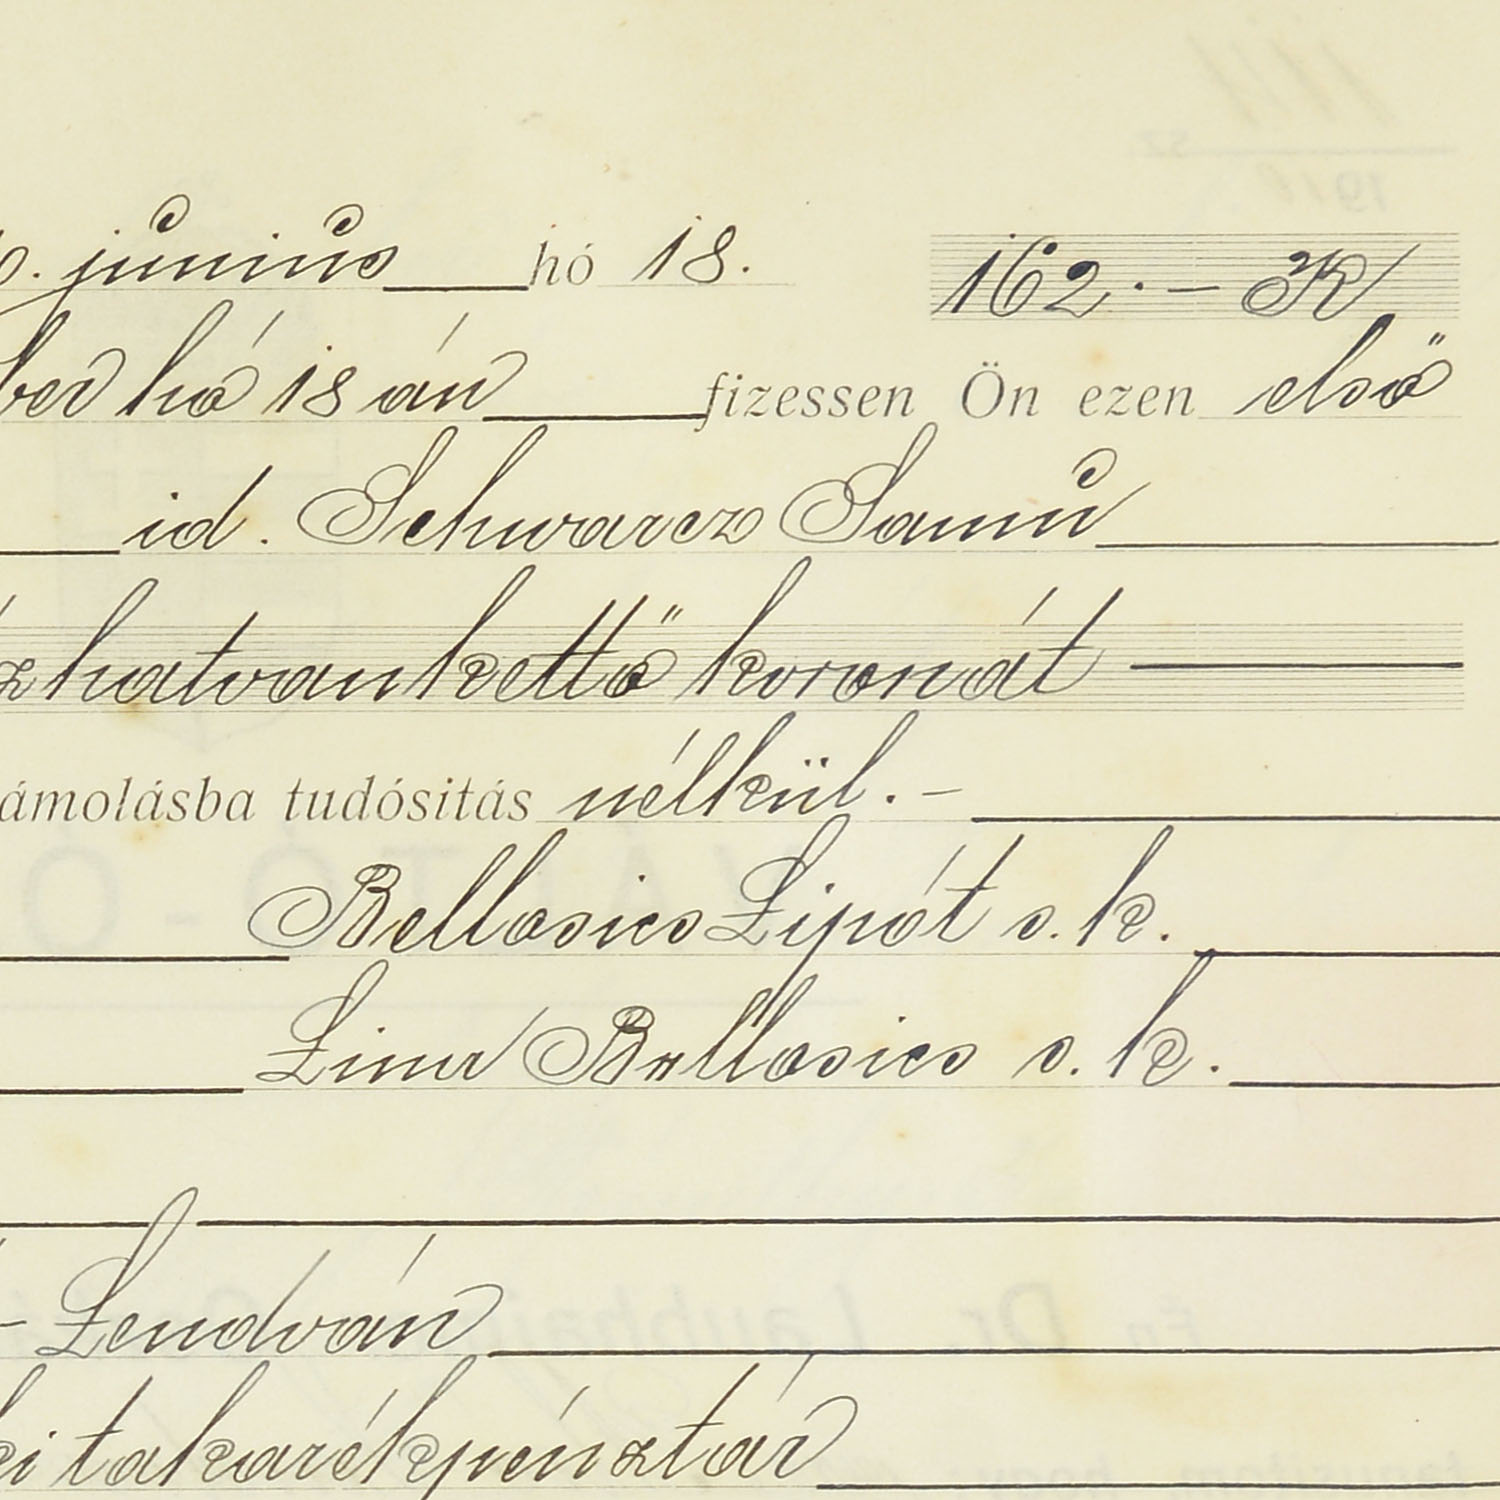 június hó 18. 162.- K
ber hó 18 án fizessen Ön ezen első
id. Schwarcz Samu
zhatvankettő koronát
ámolásba tudósitás nélkül.-
Bellosics Lipót s. k.
Lina Bellosics s. k.
- Lendván
ki takarékpénztár